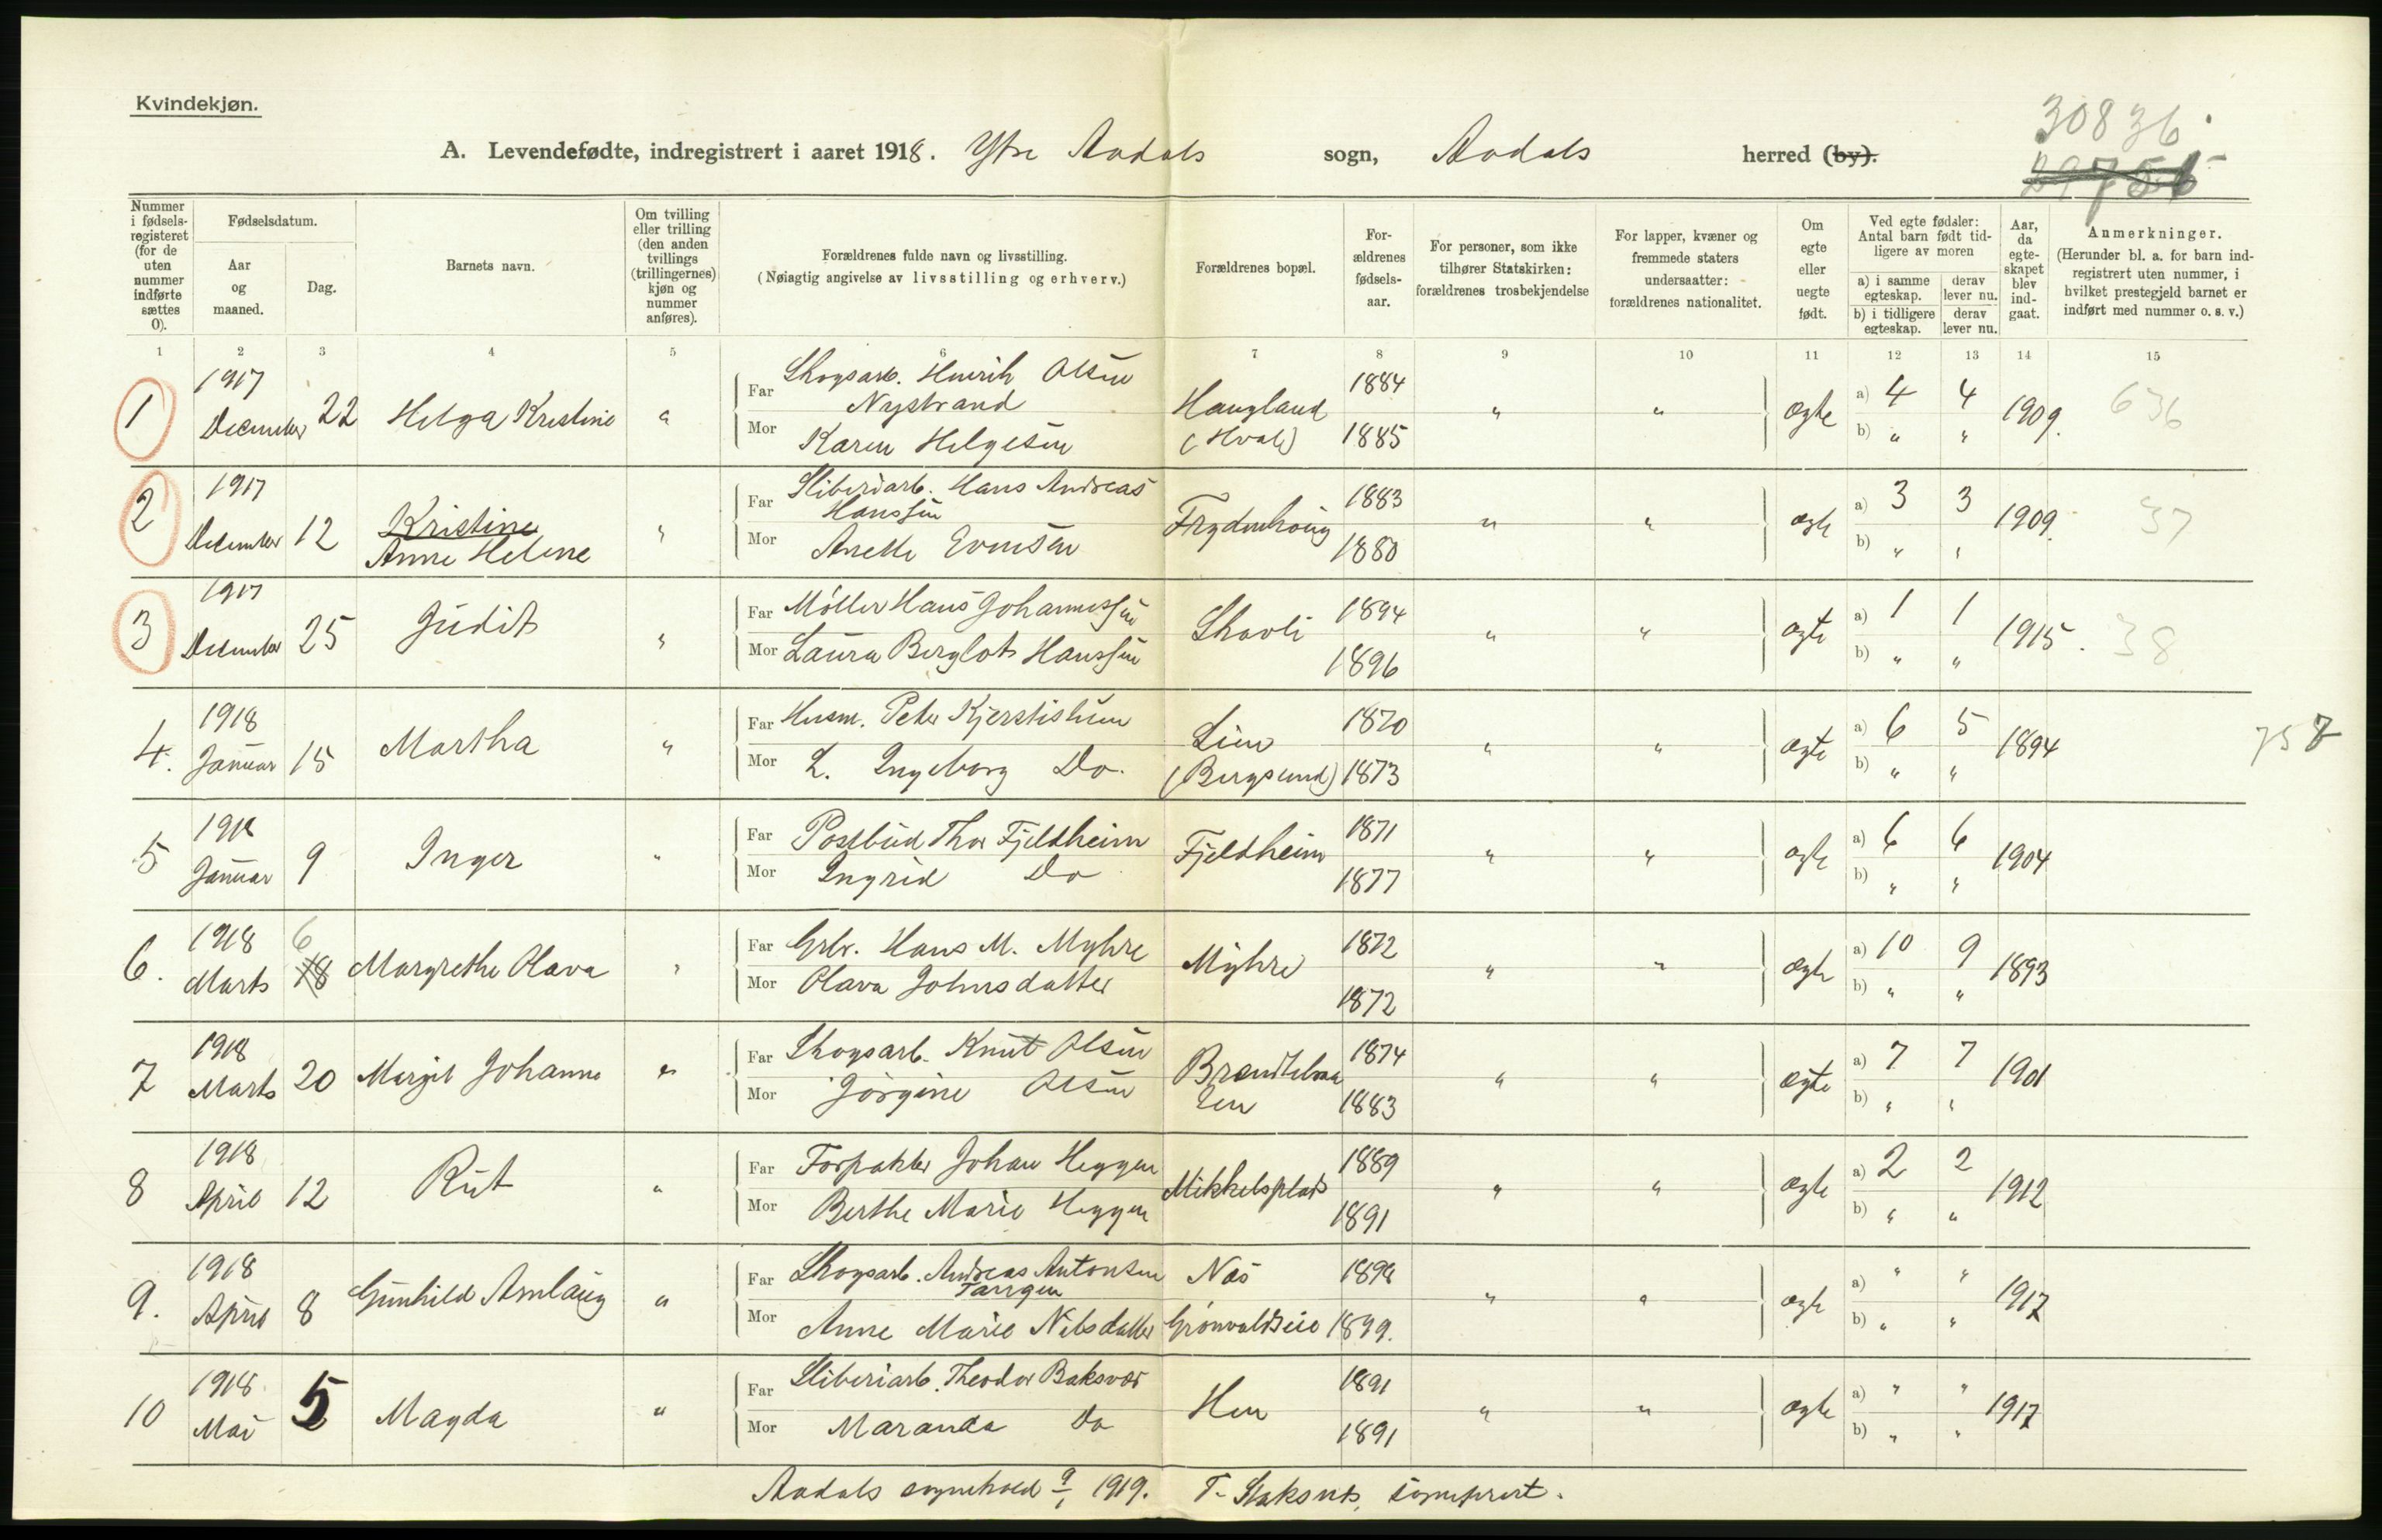 Kvindekjøn.
30836.
A. Levendefødte, indregistrert i aaret 1918. Ytre Aadals sogn, Aadals herred (by).
29756
Nummer i fødselsregisteret (for de uten nummer indførte sættes 0).
Fødselsdatum.
Aar og maaned.
Dag.
Barnets navn.
Om tvilling eller trilling (den anden tvillings (trillingernes) kjøn og nummer anføres).
Forældrenes fulde navn og livsstilling.
(Nøiagtig angivelse av livsstilling og erhverv.)
Forældrenes bopæl.
Forældrenes fødselsaar.
For personer, som ikke tilhører Statskirken: forældrenes trosbekjendelse
For lapper, kvæner og fremmede staters undersaatter: forældrenes nationalitet.
Om egte eller uegte født.
Ved egte fødsler: Antal barn født tidligere av moren
a) i samme egteskap. derav lever nu.
b) i tidligere egteskap. derav lever nu.
Aar, da egteskapet blev indgaat.
Anmerkninger.
(Herunder bl. a. for barn indregistrert uten nummer, i hvilket prestegjeld barnet er indført med nummer o. s. v.)
1 2 3 4 5 6 7 8 9 10 11 12 13 14 15
1 1917 December 22 Helga Kristine "
Far Skogsarb. Henrik Olsen Nystrand
Mor Karen Helgesen
Haugland (Hval) 1884 1885 " " ægte a) 4 4 b) " " 1909. 636
2 1917 December 12 Kristine Anne Helene "
Far Sliberiarb. Hans Andreas Hanssen
Mor Anette Evensen
Frydenhaug 1883 1880 " " ægte a) 3 3 b) " " 1909. 37
3 1917 December 25 Judit "
Far Møller Hans Johannessen
Mor Laura Berglot Hanssen
Skavli 1894 1896 " " ægte a) 1 1 b) " " 1915. 38
4. 1918 Januar 15 Martha "
Far Husm. Peter Kjerstistuen
Mor L. Ingeborg Do.
Lien (Bergsund) 1870 1873 " " ægte a) 6 5 b) " " 1894 757
5 1918 Januar 9 Inger "
Far Postbud Thor Fjeldheim
Mor Ingrid Do
Fjeldheim 1871 1877 " " ægte a) 6 6 b) " " 1904
6. 1918 Marts 6 18 Margrethe Olava "
Far Grbr. Hans M. Myhre
Mor Olava Johnsdatter
Myhre 1872 1872 " " ægte a) 10 9 b) " " 1893
7 1918 Marts 20 Margit Johanne "
Far Skogsarb. Knut Olsen
Mor Jörgine Olsen
1874 1883 " " ægte a) 7 7 b) " " 1901
8 1918 April 12 Rut "
Far Forpakter Johan Heggen
Mor Berthe Marie Heggen
Mikkelsplads 1889 1891 " " ægte a) 2 2 b) " " 1912
9. 1918 April 8 Gunhild Aslaug "
Far Skogsarb. Andreas Antonsen
Mor Anne Marie Nilsdatter
Næs Grönvoldseie 1898 1899. " " ægte a) " " b) " " 1917
10 1918 Mai 5 Magda "
Far Sliberiarb. Theodor Baksvær
Mor Maranda Do
Hen 1891 1891 " " ægte a) " " b) " " 1917
Aadals sognekald 9/1 1919. T. Staksnes, sogneprest.